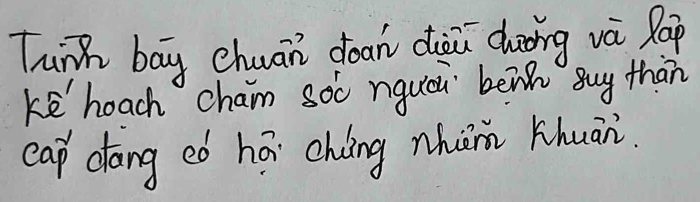 Trình bày chuẩn đoán điều dưỡng và lập
kế hoạch chăm sóc người bệnh suy thận
cấp đang có hội chứng nhiễm khuẩn.